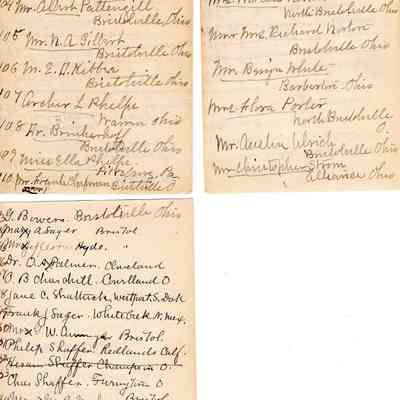 104 Mr. Albert Pattengill
Bristolville, Ohio
105 Mr. N. A. Gilbert
Bristolville Ohio
106 M. E. D. Kibbee
Bristolville Ohio
107 Archer L Phelps
Warren Ohio
108 Dr. Brinkerhoff
Bristolville Ohio
109 Miss Ella Phelps
Pittsburg, Pa
110 Mr. Frank Chapman
Bristolville O
North Bristolville
Mr & Mrs. Richard Norton
Bristolville Ohio
Mrs White
Barberton Ohio
Mrs Flora Porter
North Bristolville
O.
Mr. Aurelia Ulrich
Bristolville Ohio
Mr Christopher Strom
Alliance Ohio
G. Bowers. Bristolville Ohio
Mary A Sager Bristol
Hyde. "
Dr. O. A. Palmer. Cleveland
O. B Churchill. Cortland O
Jane C. Shattuck, Westport. S. Dak
Frank J Sager. White Oak N. Mex.
W. Bristol.
Philip Shaffer Redlands Calf.
Hiram Shaffer Champion O.
Chas Shaffer. Farmington O
Bristol